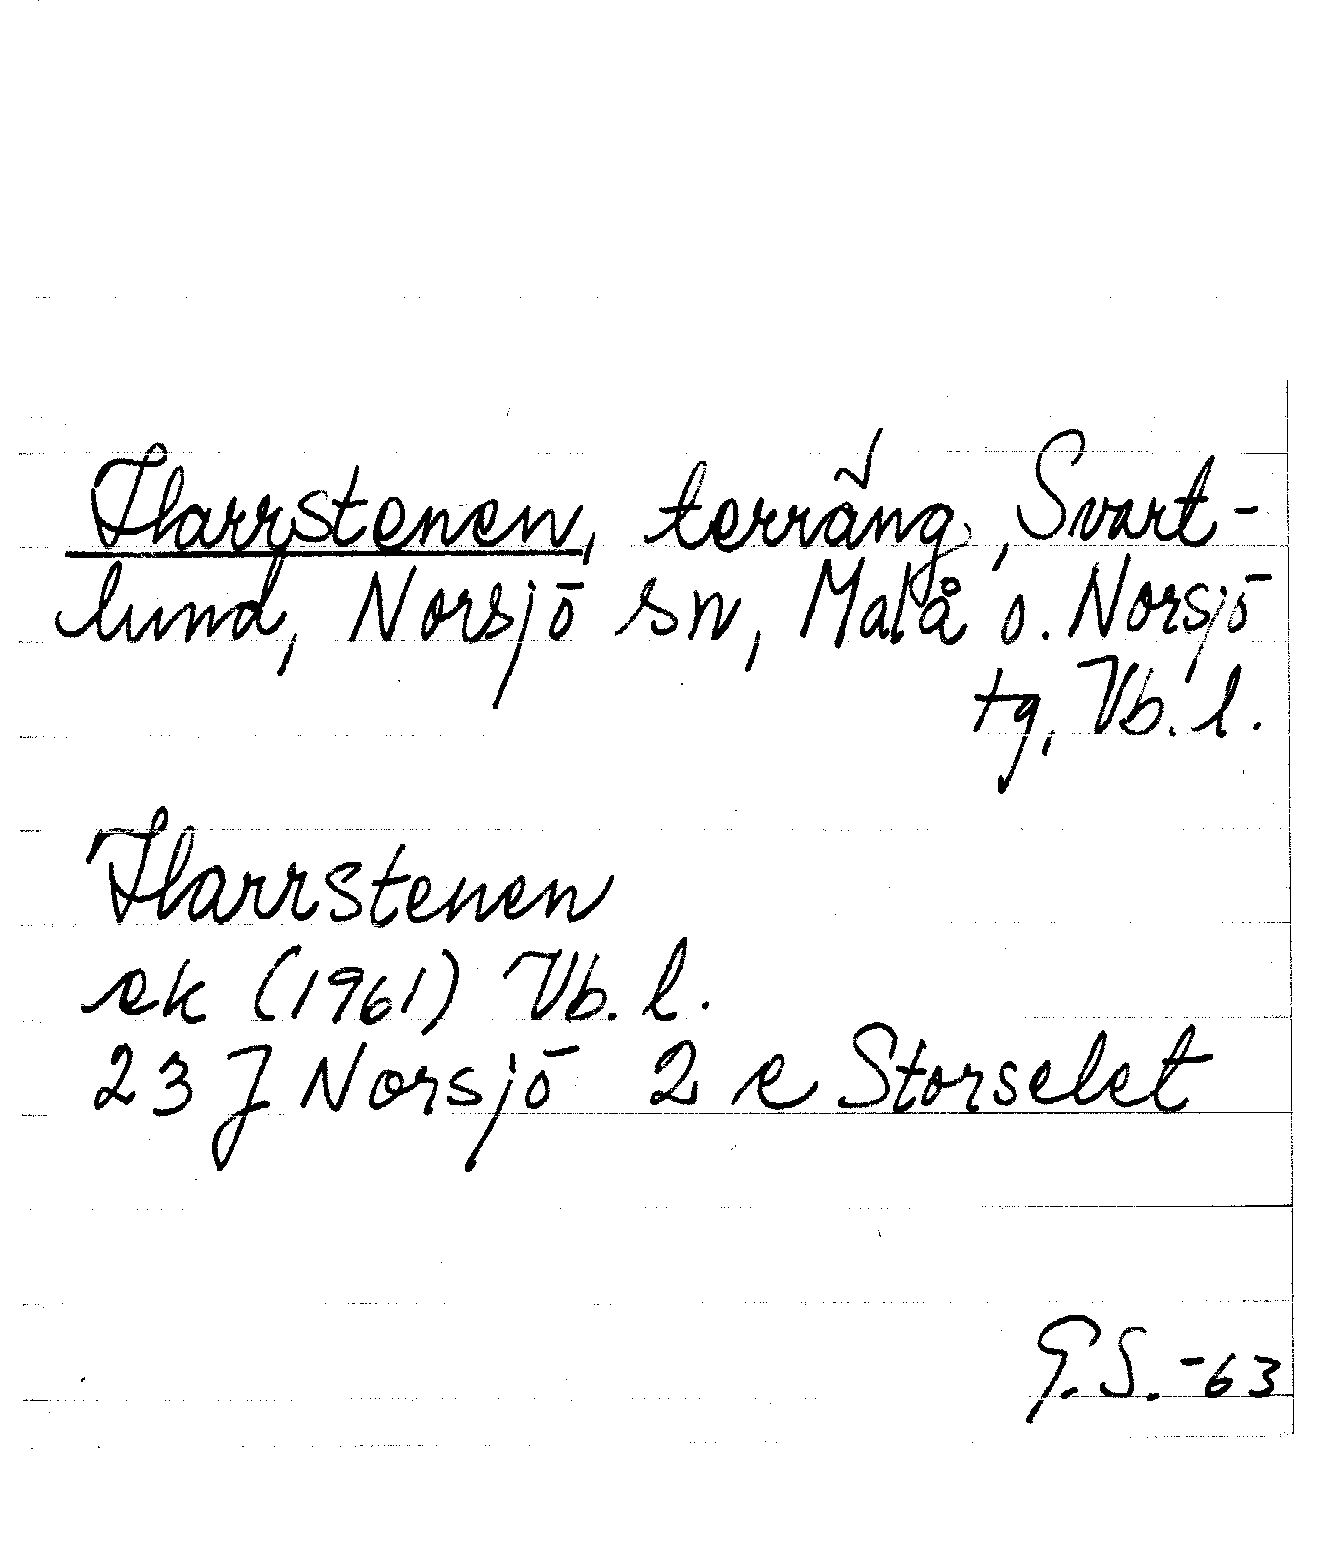 Harrstenen, terräng, Svart-
lund, Norsjö sn, Malå o. Norsjö
tg, Vb. l.
Harrstenen
ek (1961) Vb. l.
23 J Norsjö 2 e Storselet
G.S. -63